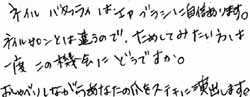 ネイル バタフライはエアブラシに自信あります。
ネイルサロンとは違うので、ためしてみたい方は
一度この機会にどうですか。
おしゃべりしながらあなたの爪をステキに演出します。